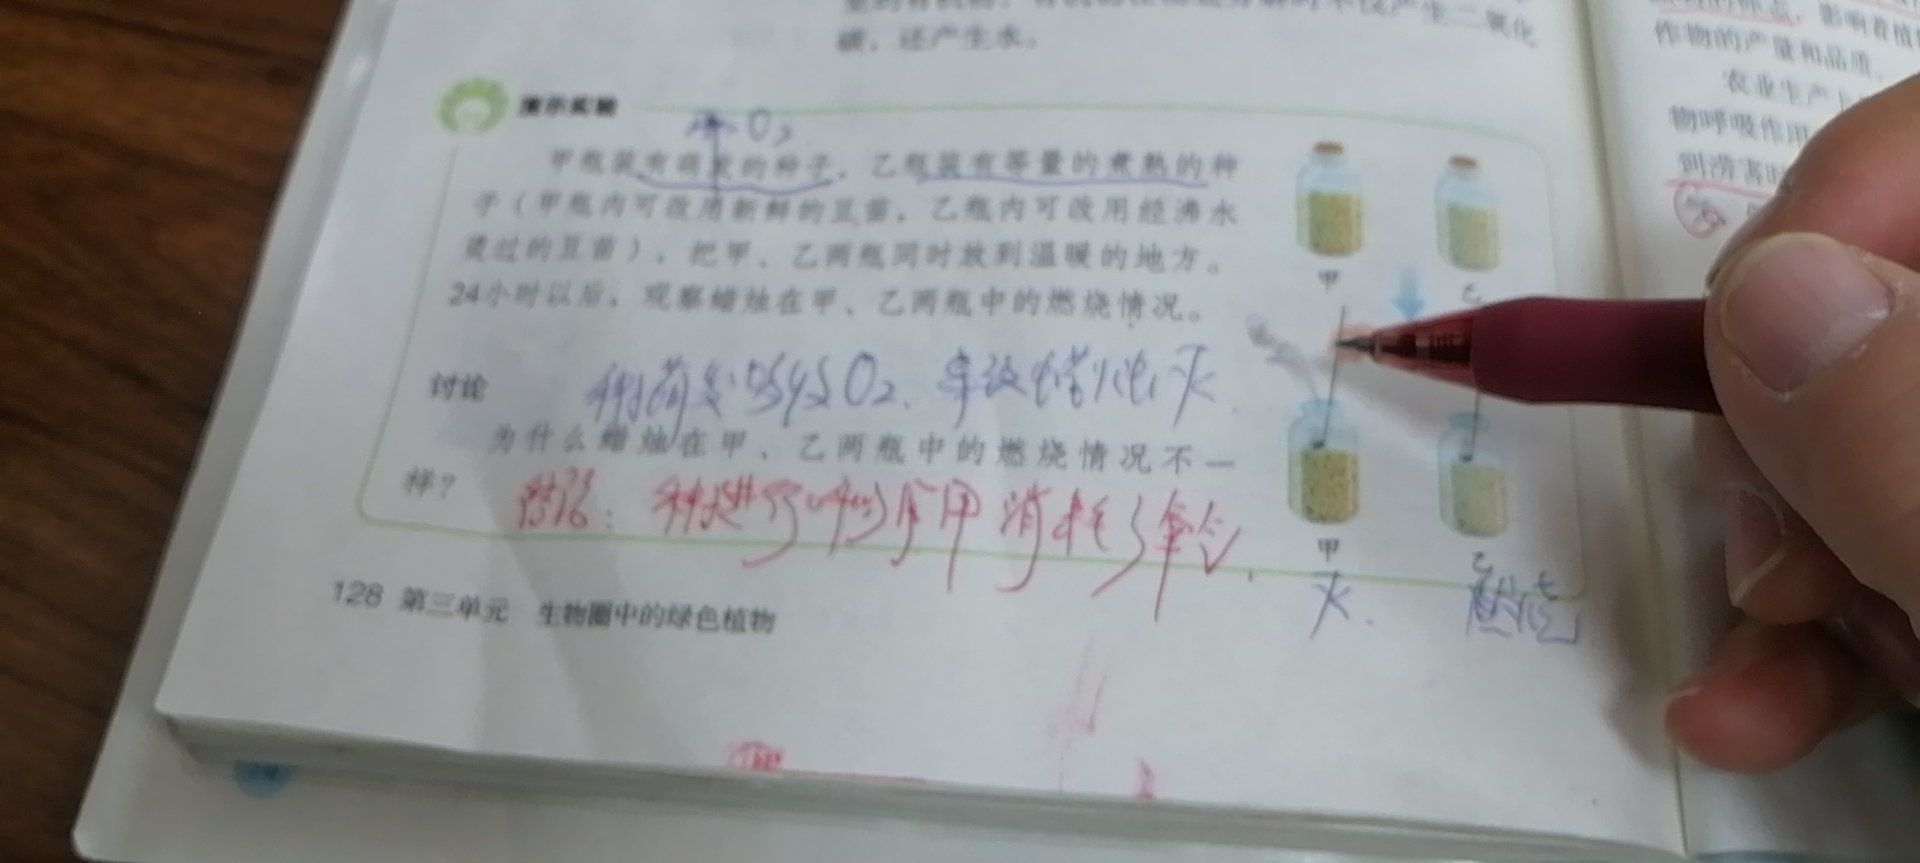 碳，还产生水。
作物的产量和品质。
农业生产上
物呼吸作用
到涝害时
演示实验
O₂
甲瓶装有萌发的种子，乙瓶装有等量的煮熟的种
子（甲瓶内可改用新鲜的豆苗，乙瓶内可改用经沸水
烫过的豆苗），把甲、乙两瓶同时放到温暖的地方。
24小时以后，观察蜡烛在甲、乙两瓶中的燃烧情况。
甲
乙
讨论
种子萌发吸收O₂，导致蜡烛灭
为什么蜡烛在甲、乙两瓶中的燃烧情况不一
样？
结论：种子进行呼吸作用消耗了氧气.
甲
乙
灭.
燃烧
128 第三单元 生物圈中的绿色植物